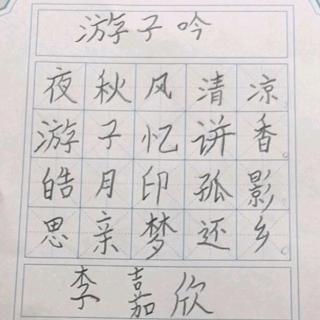 游子吟
夜秋风清凉
游子忆讲香
皓月印孤影
思亲梦还乡
李嘉欣